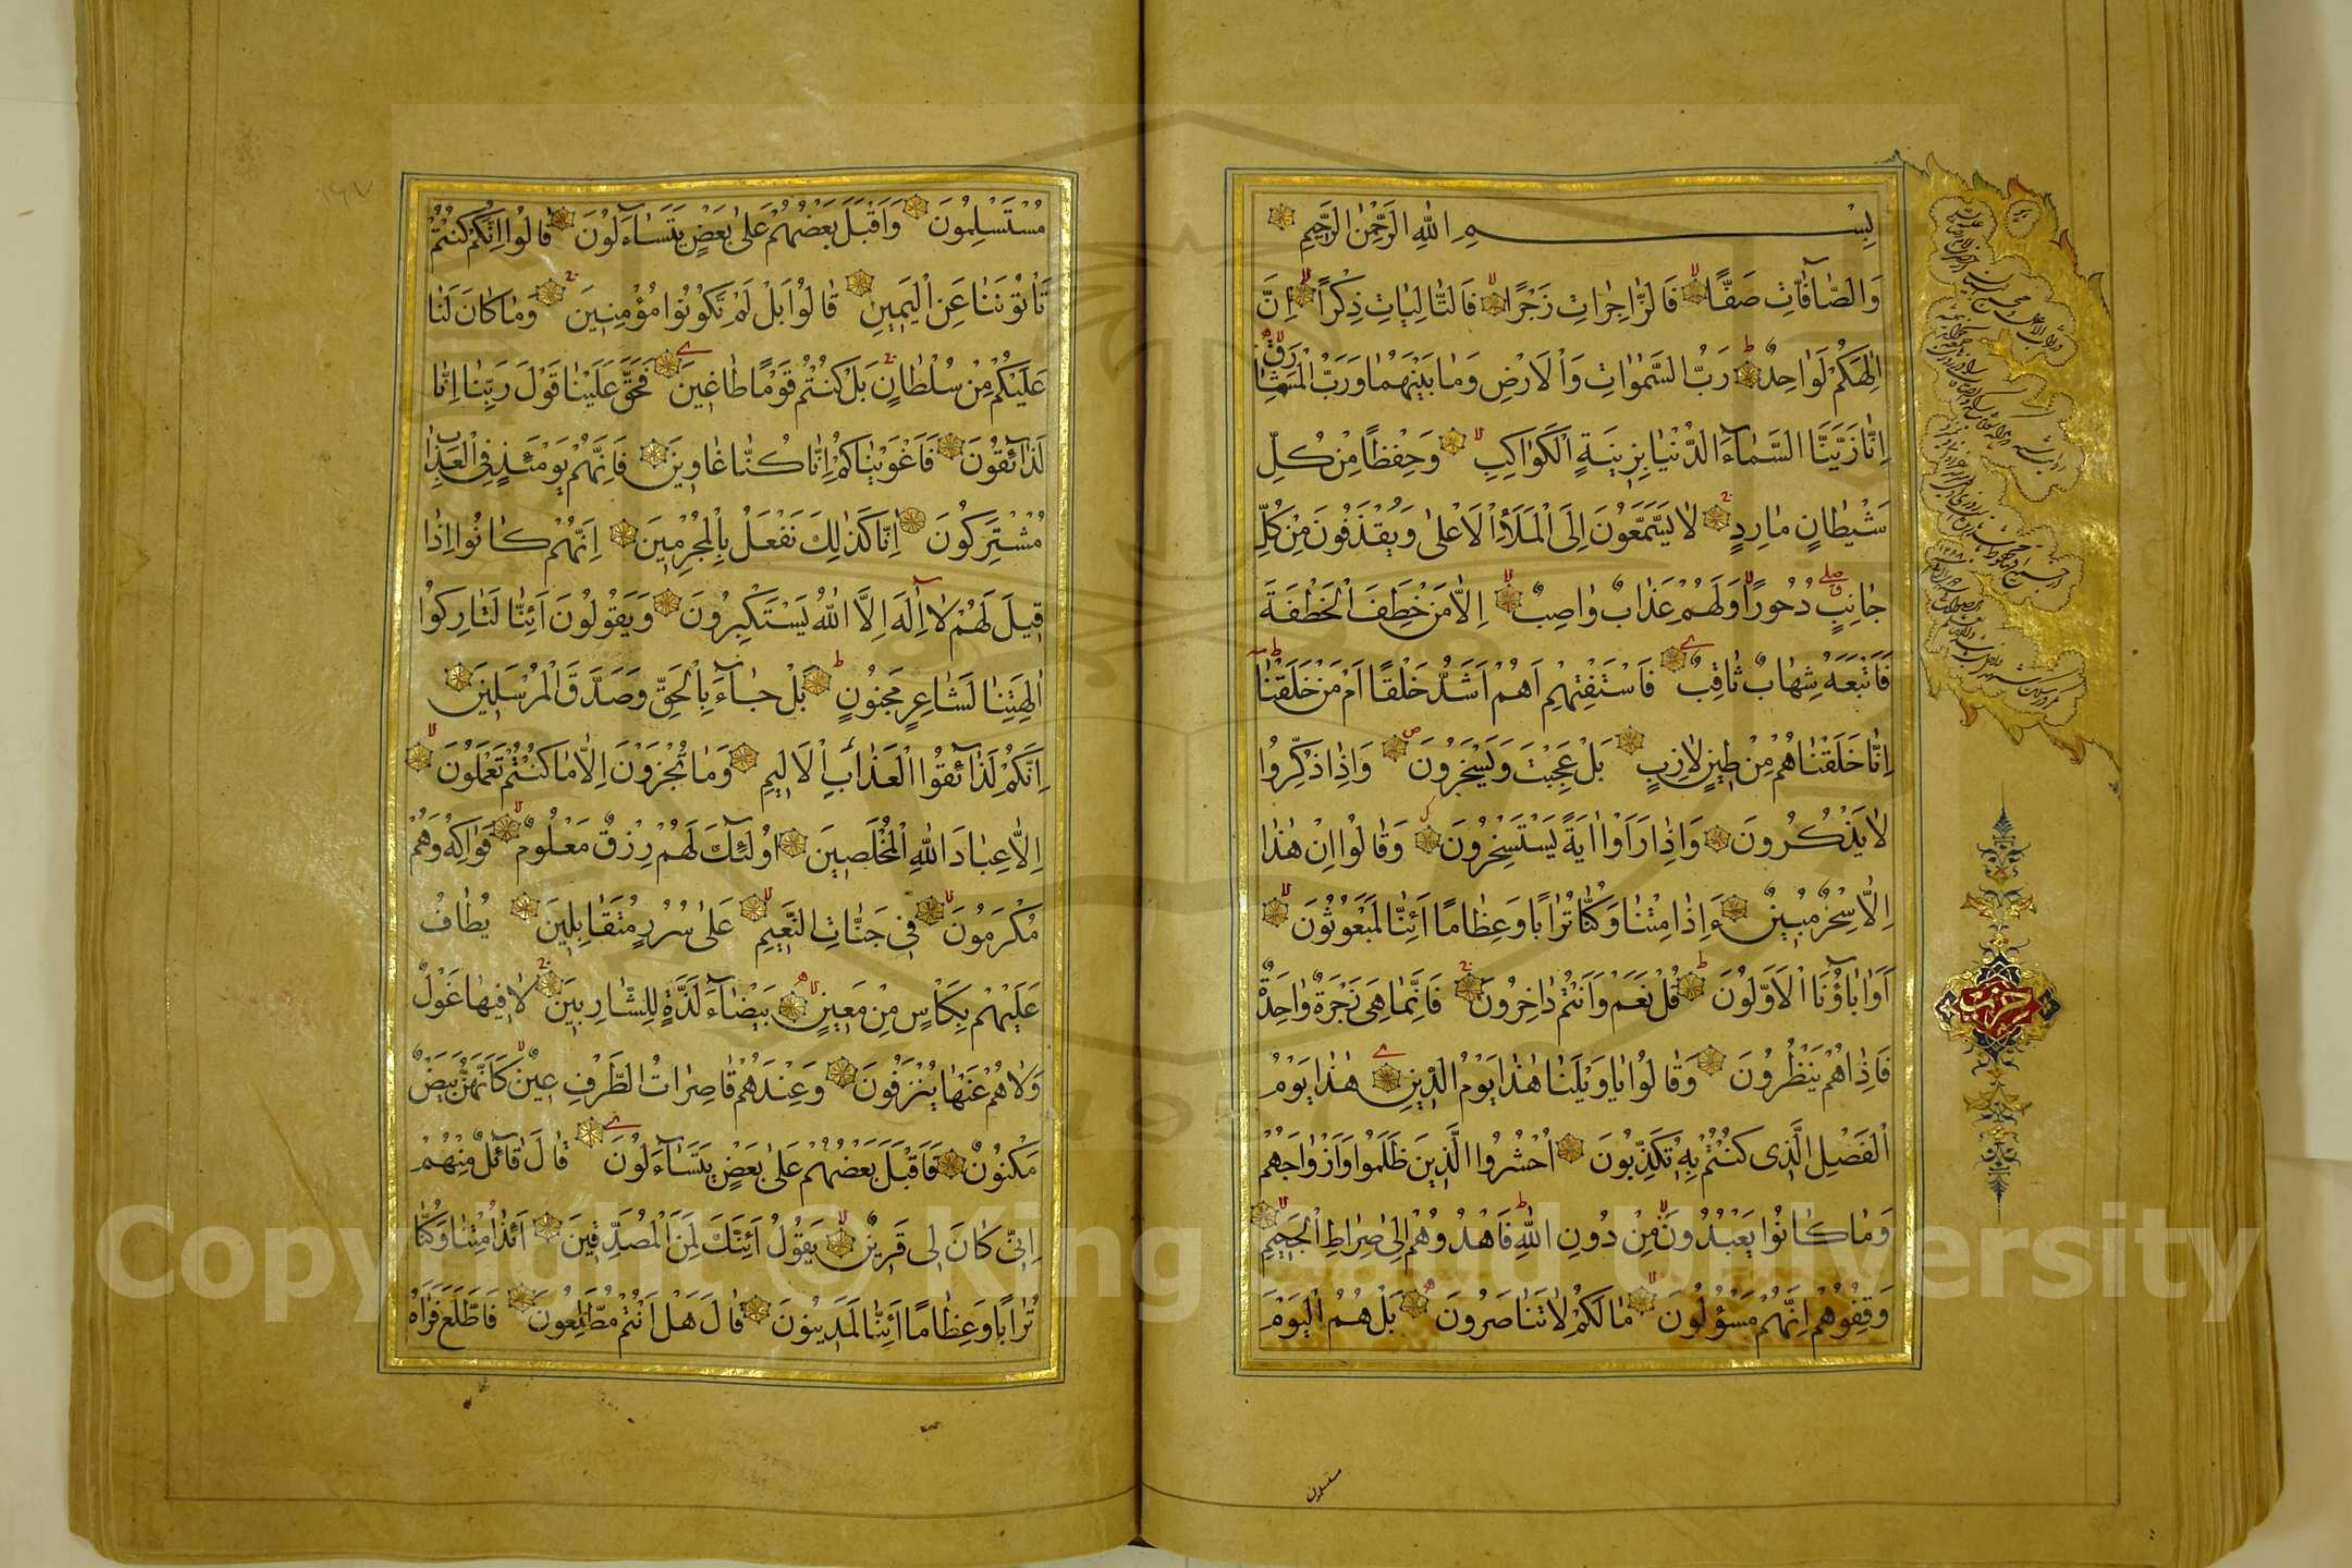 بِسْمِ اللّٰهِ الرَّحْمٰنِ الرَّحِيمِ
وَالصَّافَّاتِ صَفًّا فَالزَّاجِرَاتِ زَجْرًا فَالتَّالِيَاتِ ذِكْرًا اِنَّ
اِلٰهَكُمْ لَوَاحِدٌ رَبُّ السَّمٰوَاتِ وَالْاَرْضِ وَمَا بَيْنَهُمَا وَرَبُّ الْمَشَارِقِ
اِنَّا زَيَّنَّا السَّمَآءَ الدُّنْيَا بِزِينَةٍ الْكَوَاكِبِ وَحِفْظًا مِنْ كُلِّ
شَيْطَانٍ مَارِدٍ لَا يَسَّمَّعُونَ اِلَى الْمَلَاِ الْاَعْلٰى وَيُقْذَفُونَ مِنْ كُلِّ
جَانِبٍ دُحُورًا وَلَهُمْ عَذَابٌ وَاصِبٌ اِلَّا مَنْ خَطِفَ الْخَطْفَةَ
فَاَتْبَعَهُ شِهَابٌ ثَاقِبٌ فَاسْتَفْتِهِمْ اَهُمْ اَشَدُّ خَلْقًا اَمْ مَنْ خَلَقْنَا
اِنَّا خَلَقْنَاهُمْ مِنْ طِينٍ لَازِبٍ بَلْ عَجِبْتَ وَيَسْخَرُونَ وَاِذَا ذُكِّرُوا
لَا يَذْكُرُونَ وَاِذَا رَاَوْا اٰيَةً يَسْتَسْخِرُونَ وَقَالُوا اِنْ هٰذَا
اِلَّا سِحْرٌ مُبِينٌ ءَاِذَا مِتْنَا وَكُنَّا تُرَابًا وَعِظَامًا اَئِنَّا لَمَبْعُوثُونَ
اَوَاٰبَآؤُنَا الْاَوَّلُونَ قُلْ نَعَمْ وَاَنْتُمْ دَاخِرُونَ فَاِنَّمَا هِيَ زَجْرَةٌ وَاحِدَةٌ
فَاِذَا هُمْ يَنْظُرُونَ وَقَالُوا يَا وَيْلَنَا هٰذَا يَوْمُ الدِّينِ هٰذَا يَوْمُ
الْفَصْلِ الَّذِي كُنْتُمْ بِهِ تُكَذِّبُونَ اُحْشُرُوا الَّذِينَ ظَلَمُوا وَاَزْوَاجَهُمْ
وَمَا كَانُوا يَعْبُدُونَ مِنْ دُونِ اللّٰهِ فَاهْدُوهُمْ اِلٰى صِرَاطِ الْجَحِيمِ
وَقِفُوهُمْ اِنَّهُمْ مَسْؤُلُونَ مَا لَكُمْ لَا تَنَاصَرُونَ بَلْ هُمُ الْيَوْمَ
مستسلمون
حزب
مُسْتَسْلِمُونَ وَاَقْبَلَ بَعْضُهُمْ عَلٰى بَعْضٍ يَتَسَآءَلُونَ قَالُوا اِنَّكُمْ كُنْتُمْ
تَاْتُونَنَا عَنِ الْيَمِينِ قَالُوا بَلْ لَمْ تَكُونُوا مُؤْمِنِينَ وَمَا كَانَ لَنَا
عَلَيْكُمْ مِنْ سُلْطَانٍ بَلْ كُنْتُمْ قَوْمًا طَاغِينَ فَحَقَّ عَلَيْنَا قَوْلُ رَبِّنَا اِنَّا
لَذَآئِقُونَ فَاَغْوَيْنَاكُمْ اِنَّا كُنَّا غَاوِينَ فَاِنَّهُمْ يَوْمَئِذٍ فِي الْعَذَابِ
مُشْتَرِكُونَ اِنَّا كَذٰلِكَ نَفْعَلُ بِالْمُجْرِمِينَ اِنَّهُمْ كَانُوا اِذَا
قِيلَ لَهُمْ لَا اِلٰهَ اِلَّا اللّٰهُ يَسْتَكْبِرُونَ وَيَقُولُونَ اَئِنَّا لَتَارِكُوا
اٰلِهَتِنَا لَشَاعِرٍ مَجْنُونٍ بَلْ جَآءَ بِالْحَقِّ وَصَدَّقَ الْمُرْسَلِينَ
اِنَّكُمْ لَذَآئِقُوا الْعَذَابِ الْاَلِيمِ وَمَا تُجْزَوْنَ اِلَّا مَا كُنْتُمْ تَعْمَلُونَ
اِلَّا عِبَادَ اللّٰهِ الْمُخْلَصِينَ اُولٰئِكَ لَهُمْ رِزْقٌ مَعْلُومٌ فَوَاكِهُ وَهُمْ
مُكْرَمُونَ فِي جَنَّاتِ النَّعِيمِ عَلٰى سُرُرٍ مُتَقَابِلِينَ يُطَافُ
عَلَيْهِمْ بِكَاْسٍ مِنْ مَعِينٍ بَيْضَآءَ لَذَّةٍ لِلشَّارِبِينَ لَا فِيهَا غَوْلٌ
وَلَا هُمْ عَنْهَا يُنْزَفُونَ وَعِنْدَهُمْ قَاصِرَاتُ الطَّرْفِ عِينٌ كَاَنَّهُنَّ بَيْضٌ
مَكْنُونٌ فَاَقْبَلَ بَعْضُهُمْ عَلٰى بَعْضٍ يَتَسَآءَلُونَ قَالَ قَآئِلٌ مِنْهُمْ
اِنِّي كَانَ لِي قَرِينٌ يَقُولُ اَئِنَّكَ لَمِنَ الْمُصَدِّقِينَ اَئِذَا مِتْنَا وَكُنَّا
تُرَابًا وَعِظَامًا اَئِنَّا لَمَدِينُونَ قَالَ هَلْ اَنْتُمْ مُطَّلِعُونَ فَاطَّلَعَ فَرَاٰهُ
Copyright © King Saud University